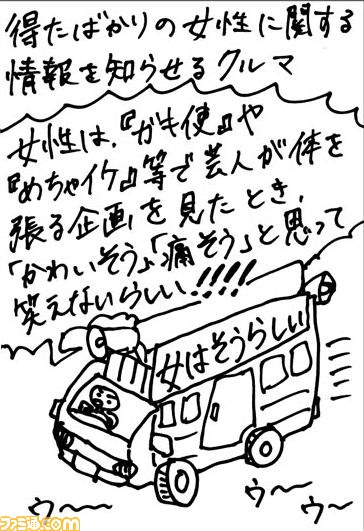 得たばかりの女性に関する
情報を知らせるクルマ
女性は、『ガキ使』や
『めちゃイケ』等で芸人が体を
張る企画を見たとき、
「かわいそう」「痛そう」と思って
笑えないらしい!!!!
女はそうらしい
ウ〜〜
ウ〜
ウ〜
ファミ通.com